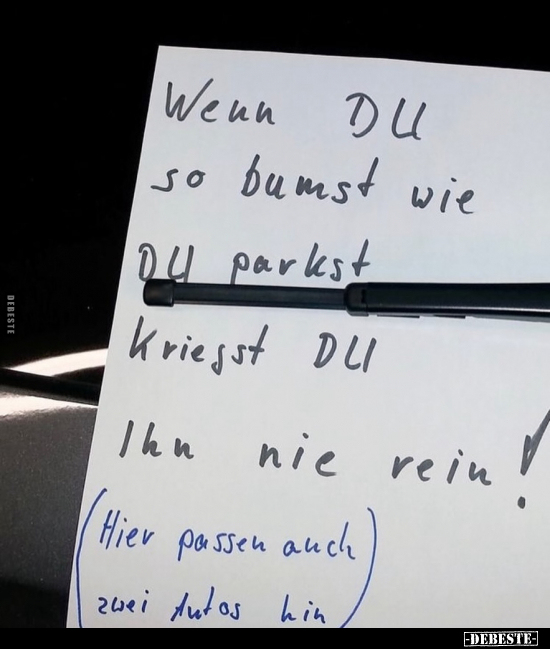 Wenn DU
so bumst wie
DU parkst
kriegst DU
Ihn nie rein!
(Hier passen auch
zwei Autos hin)
DEBESTE
-DEBESTE-